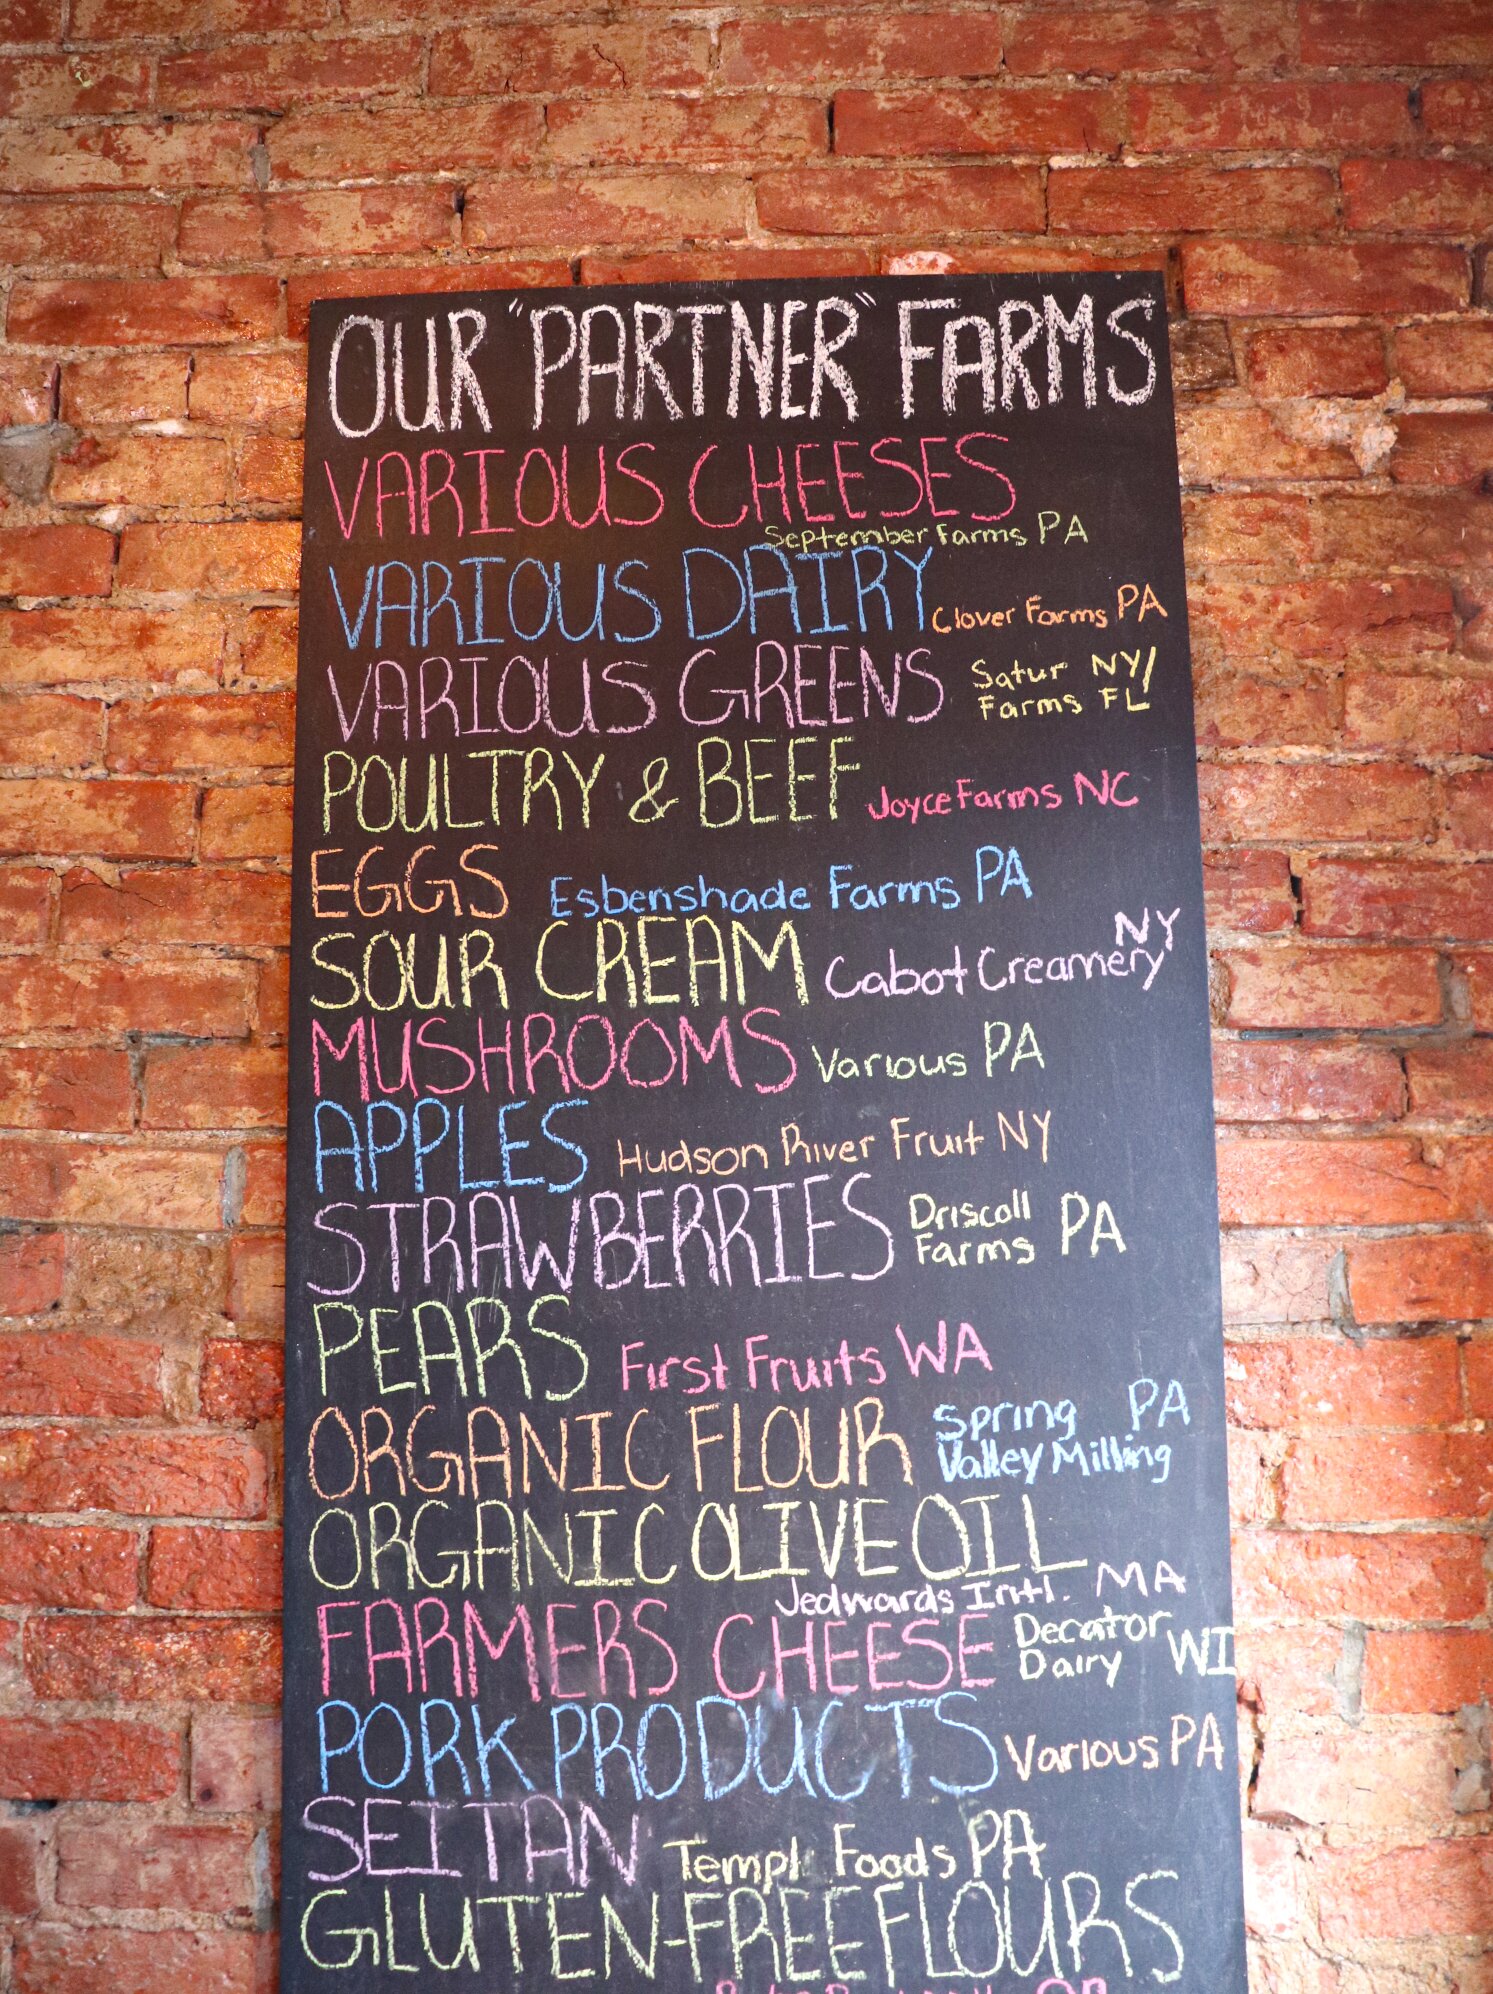 OUR "PARTNER" FARMS
VARIOUS CHEESES
September Farms PA
VARIOUS DAIRY Clover Farms PA
VARIOUS GREENS Satur NY/
Farms FL
POULTRY & BEEF Joyce Farms NC
EGGS Esbenshade Farms PA
NY
SOUR CREAM Cabot Creamery
MUSHROOMS Various PA
APPLES Hudson River Fruit NY
STRAWBERRIES Driscoll PA
Farms
PEARS First Fruits WA
ORGANIC FLOUR Spring PA
Valley Milling
ORGANIC OLIVE OIL
Jedwards Intl. MA
FARMERS CHEESE Decator WI
Dairy
PORK PRODUCTS Various PA
SEITAN Foods PA
GLUTEN-FREE FLOURS